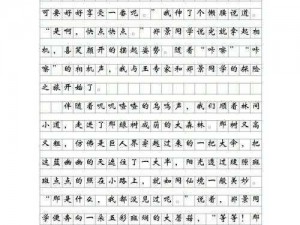 可要好好享受一番呢。”我伸了个懒腰说道
“是啊，快点快点。”那景同学说完就拿起相
机，喜笑颜开的摆起姿势。随着“咔嚓”“咔
嚓”的相机声，我与王专家和那景同学的探险
之旅开始了
伴随着叽叽喳喳的鸟鸣声，我们顺着林间
小道，走进了郁绿树成荫的大森林。那树又高
又粗，仿佛是巨人家拿起过来的一把大伞，把
这蓝幽幽的天遮住了一大半，阳光透过缝隙斑
斑点点的照在小路上，犹如同仙境一般美妙。
“那是什么，我都没见过呢。”说着，那景同
学便奔向一朵五彩斑斓的大蘑菇，“等等！那